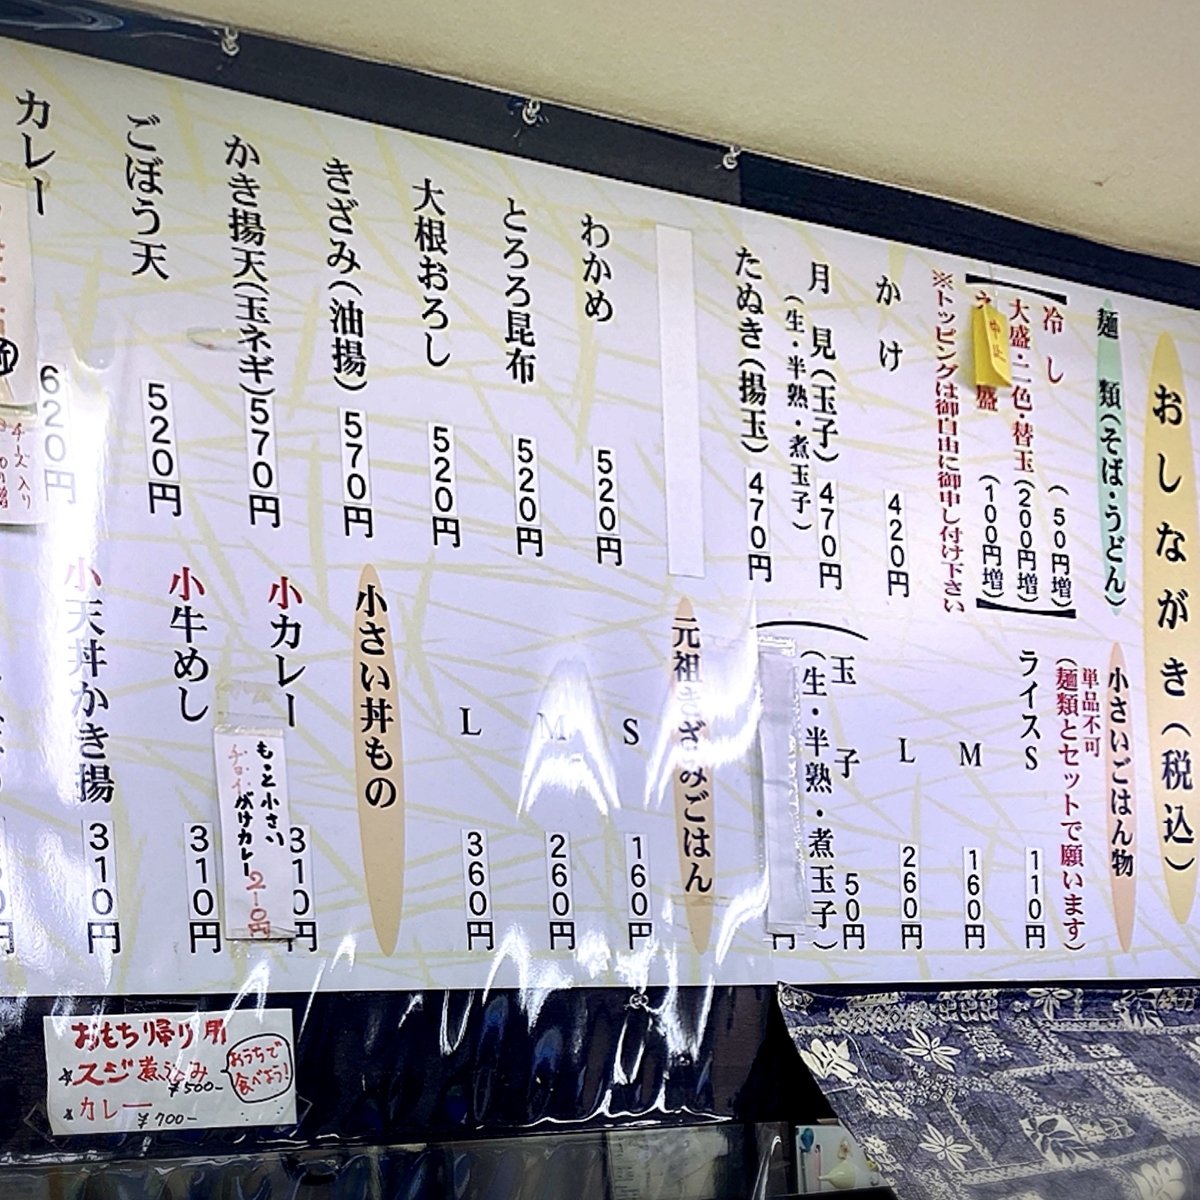 おしながき(税込)
麺類(そば・うどん)
冷し(50円増)
大盛・二色・替玉(200円増)
盛(100円増)
中止
※トッピングは御自由に御申し付け下さい
かけ 420円
月見(玉子) 470円
(生・半熟・煮玉子)
たぬき(揚玉) 470円
わかめ 520円
とろろ昆布 520円
大根おろし 520円
きざみ(油揚) 570円
かき揚天(玉ネギ) 570円
ごぼう天 520円
カレー 620円
チーズ入り
小さいごはん物
単品不可
(麺類とセットで願います)
ライスS 110円
M 160円
L 260円
玉子 50円
(生・半熟・煮玉子)
円
元祖きざみごはん
S 160円
M 260円
L 360円
小さい丼もの
小カレー 310円
もっと小さい
チョイがけカレー 210円
小牛めし 310円
小天丼かき揚 310円
おもち帰り用
スジ煮込み ¥500-
カレー ¥700-
おうちで食べよう!